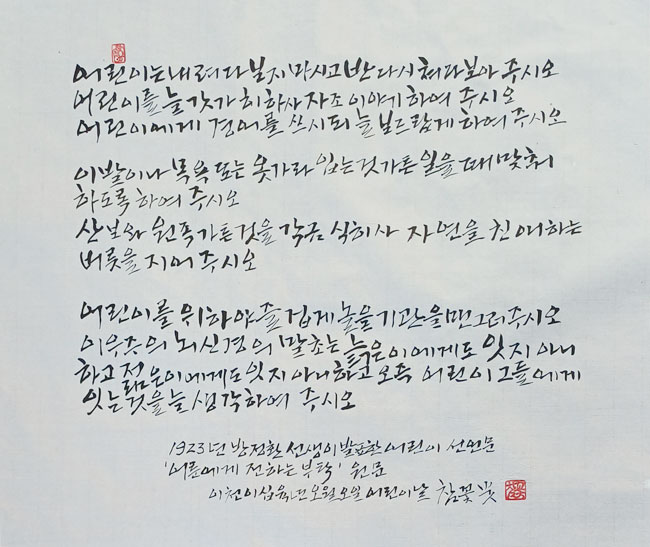 어린이는 내려다 보지 마시고 반다시 쳐다보아 주시오
어린이를 늘 갓가히 하사 자조 이야기 하여 주시오
어린이에게 경어를 쓰시되 늘 보드랍게 하여 주시오
이발이나 목욕 또는 옷가라 입는것가튼 일을 때맞춰
하도록 하여 주시오
산보와 원족가튼것을 각금 식히사 자연을 친애하는
버릇을 지어 주시오
어린이를 위하야 즐겁게 놀을 기관을 맨그러 주시오
이우주의 뇌신경의 말초는 늙은이에게도 잇지 아니
하고 젊은이에게도 잇지 아니하고 오즉 어린이 그들에게
잇는것을 늘 생각하여 주시오
1923년 방정환 선생이 발표한 어린이 선언문
'어른에게 전하는 부탁' 원문
이천이십육년 오월오일 어린이날 참꽃 빛